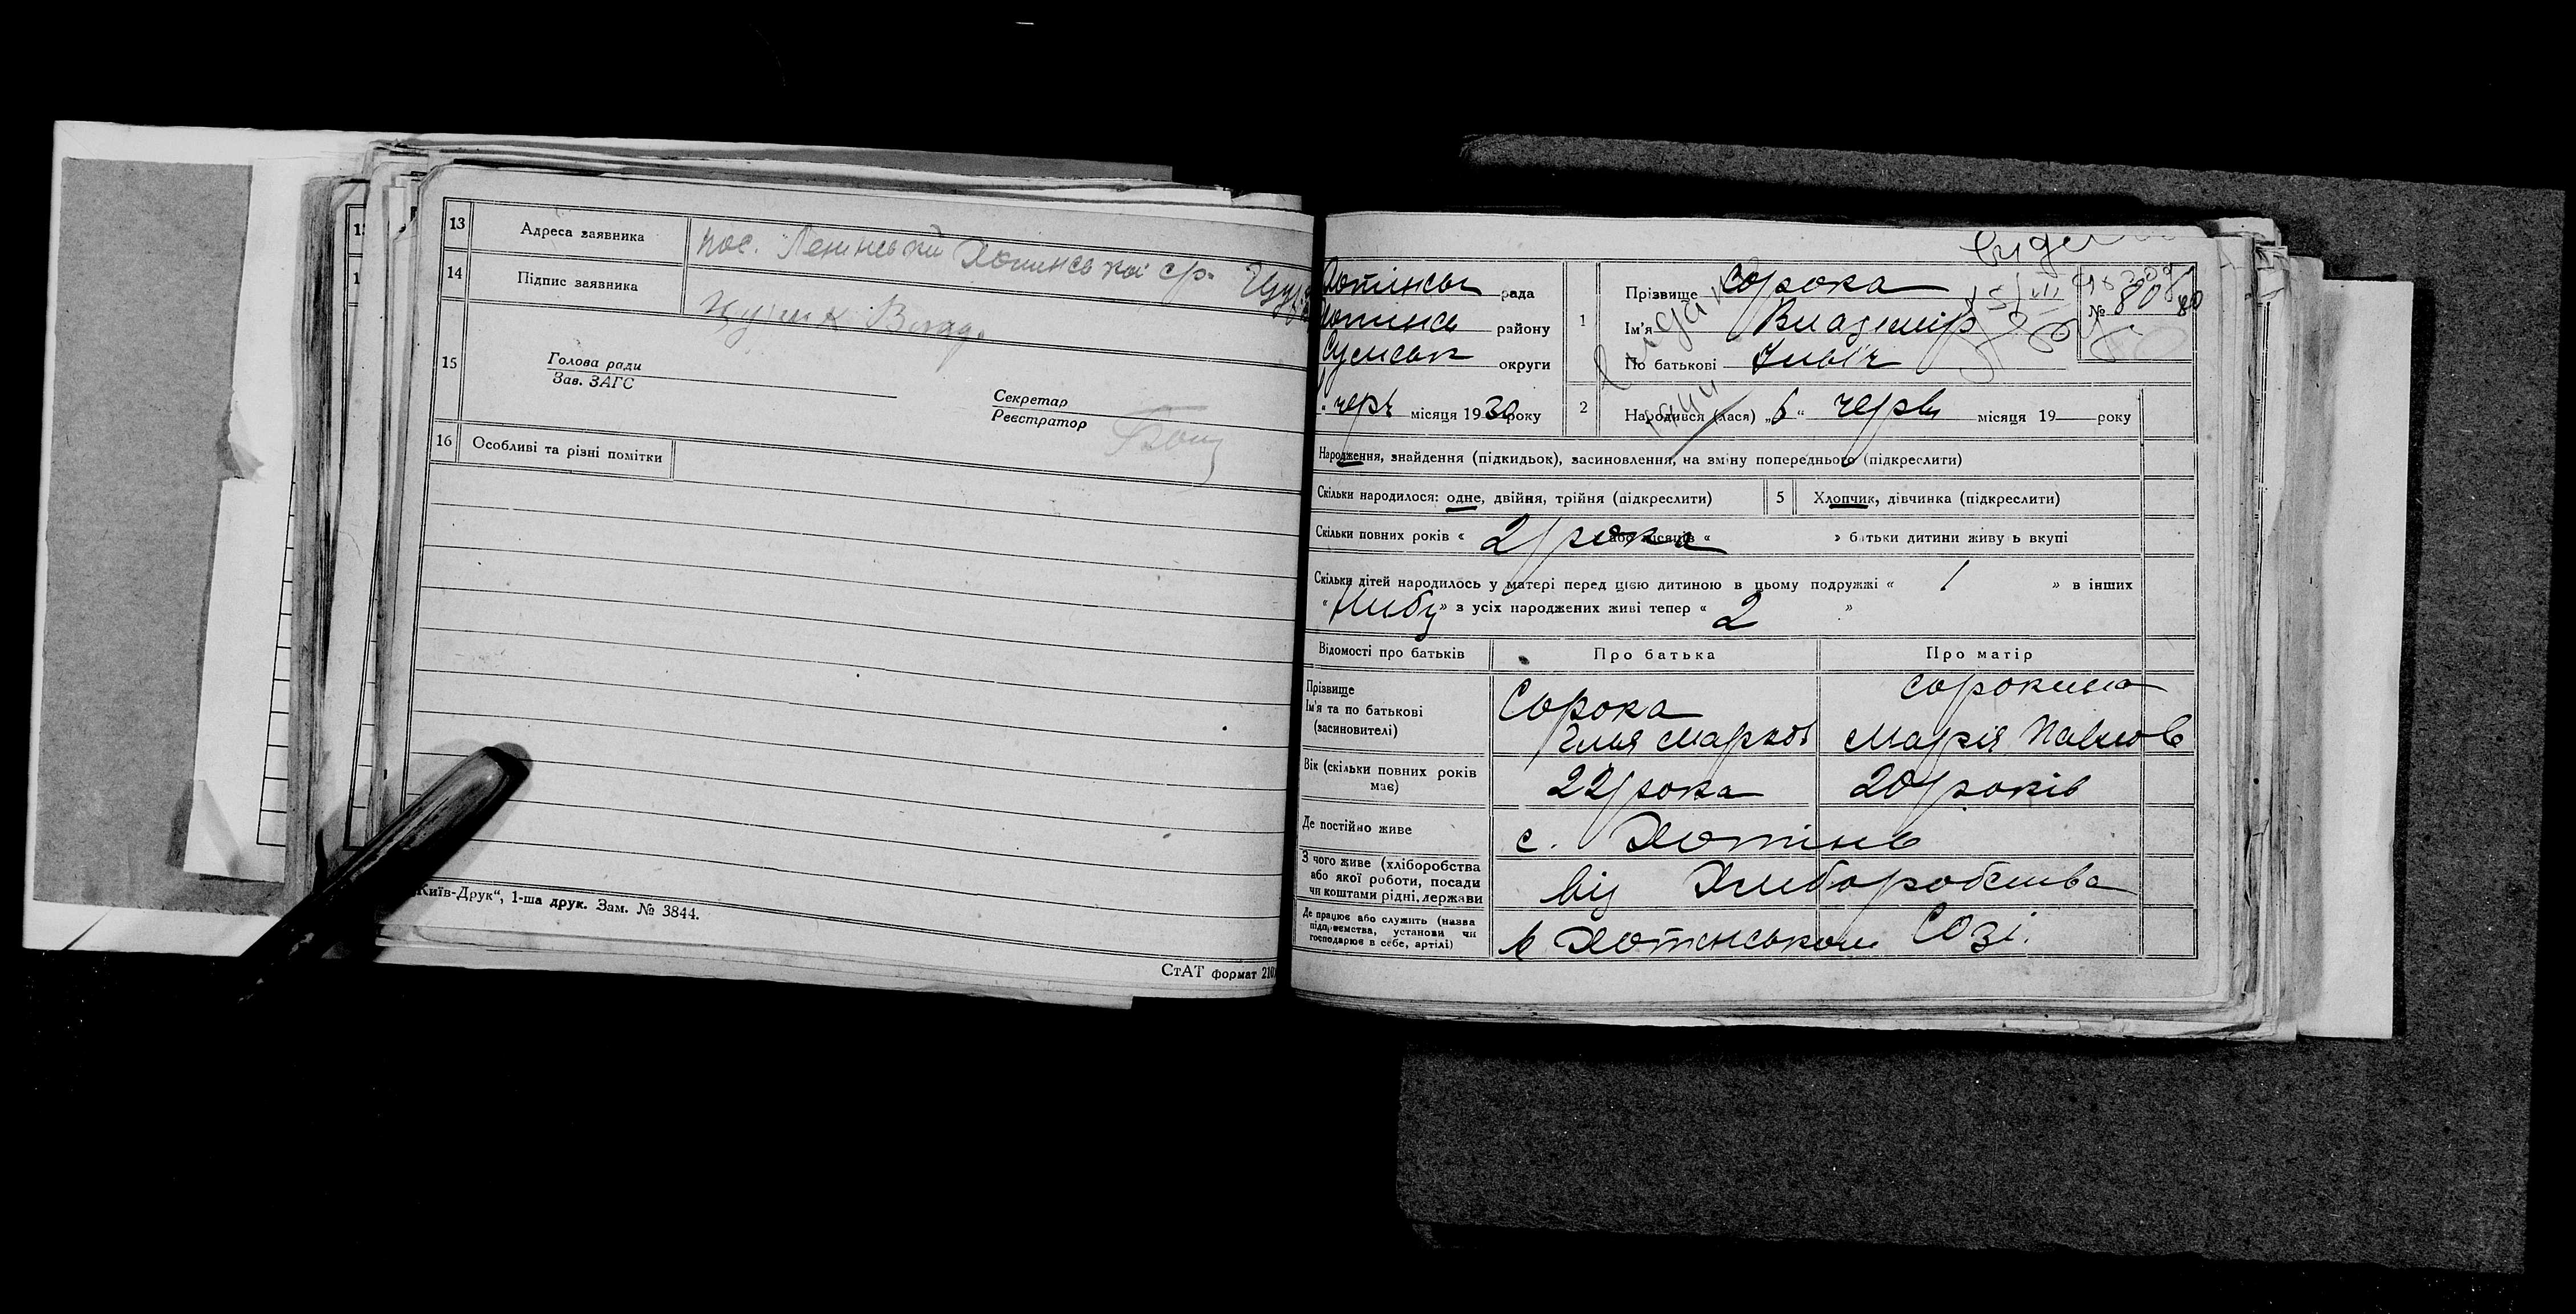 13 Адреса заявника пос. Ленінський Хотинської с/р.
14 Підпис заявника
15 Голова ради
Зав. ЗАГС
Секретар
Реєстратор
16 Особливі та різні помітки
Київ-Друк“, 1-ша друк. Зам. № 3844.
СтАТ формат 210
рада
району
Сумськ округи
черв місяця 1930 року
1 Прізвище Сорока
Ім'я Владимір
По батькові Ільіч
№ 80 80
2 Народився (лася) „6“ черв місяця 19 року
Народження, знайдення (підкидьок), засиновлення, на зміну попереднього (підкреслити)
Скільки народилося: одне, двійня, трійня (підкреслити)
5 Хлопчик, дівчинка (підкреслити)
Скільки повних років « 2 рока або місяців « » батьки дитини живуть вкупі
Скільки дітей народилось у матері перед цією дитиною в цьому подружжі « 1 » в інших
« » з усіх народжених живі тепер « 2 »
Відомості про батьків
Про батька
Про матір
Прізвище
Ім'я та по батькові
(засиновителі)
Сорока
Ілля Марков
Сорокина
Марія Павлов
Вік (скільки повних років має)
22 рока
20 років
Де постійно живе
с. Хотінь
З чого живе (хліборобства
або якої роботи, посади
чи коштами рідні, держави
від Хліборобства
Де працює або служить (назва
підприємства, установи чи
господарює в себе, артілі)
в Хотінському СОЗі.